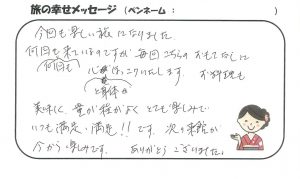 旅の幸せメッセージ （ペンネーム： ）
今回も楽しい旅になりました。
何回も来ているのですが 毎回こちらの おもてなしに
何回も 心がほっこりいたします。 お料理も
と身体の
美味しく 量が程がよく とても楽しみで
いつも満足・満足!! です。 次の来館が
今から楽しみです。 ありがとうございました。